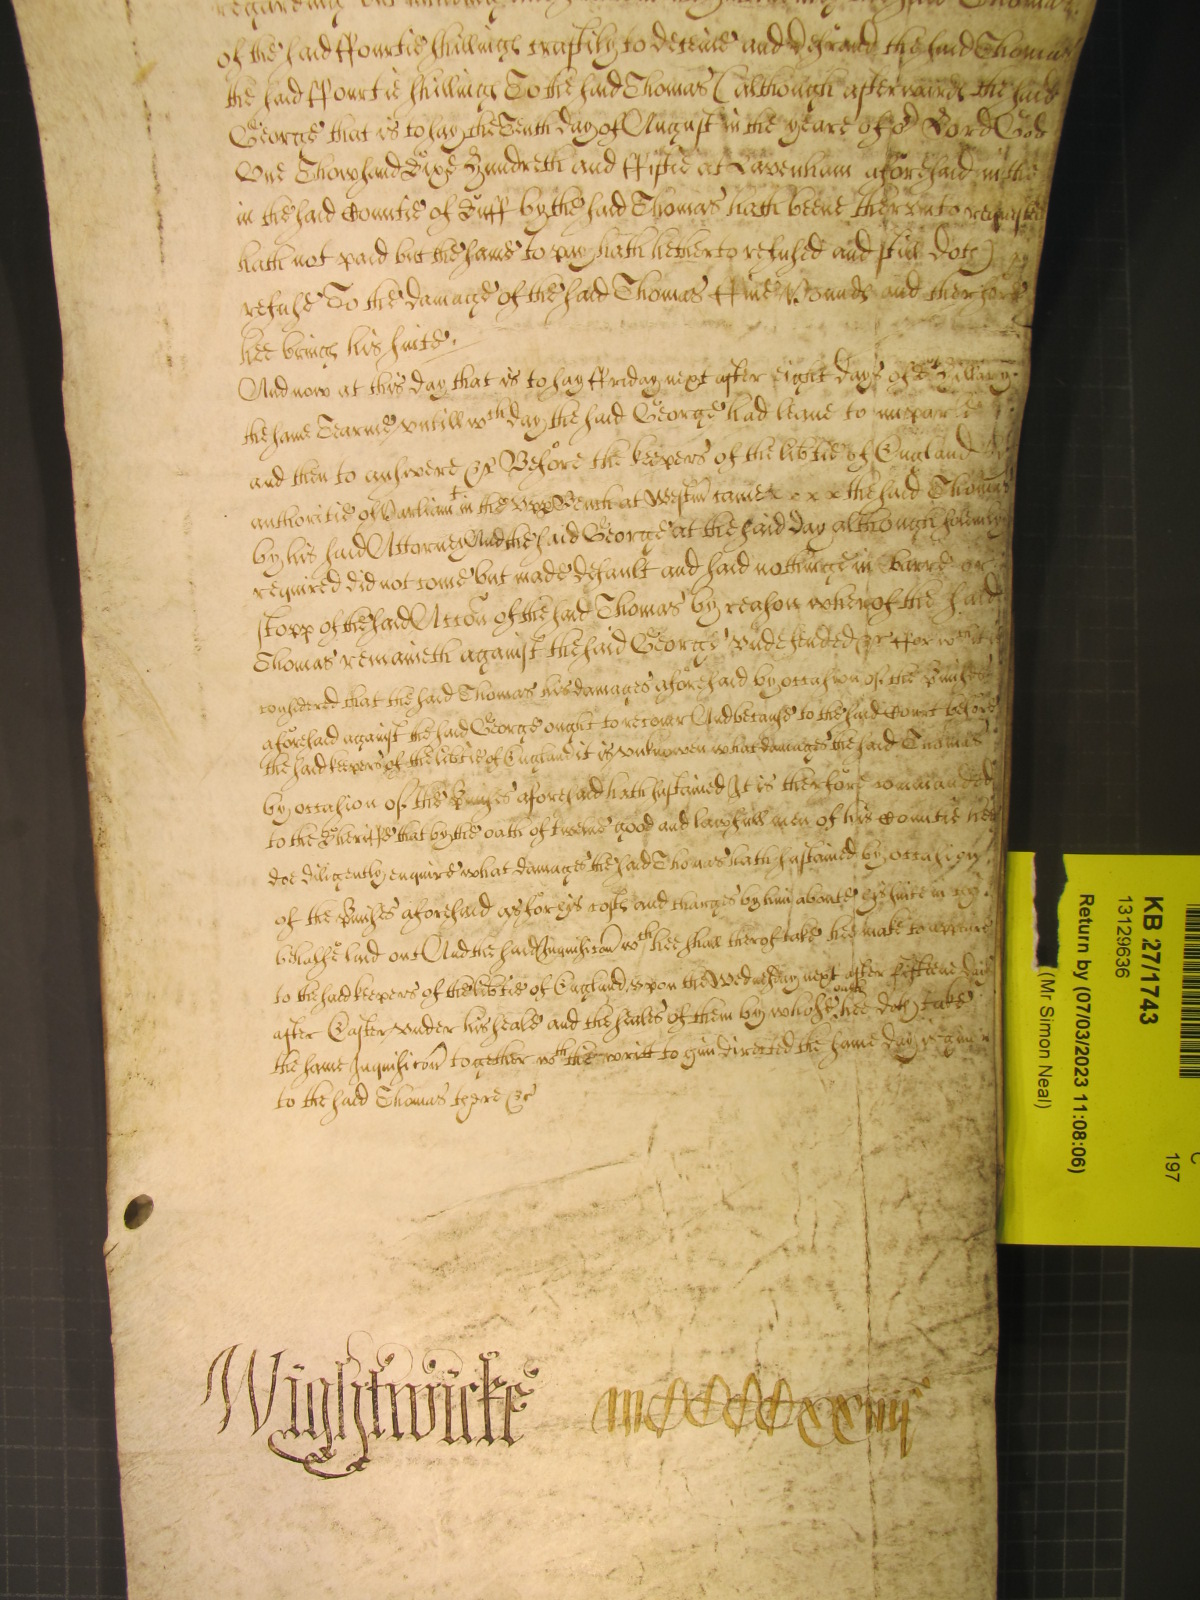 regarding his
of the said ffourtie shillings craftily to deceive and defraud the said Thomas
the said ffourtie shillings To the said Thomas (although afterwards the said
George that is to say the Tenth day of August in the yeare of or Lord God
One Thowsand Sixe Hundreth and ffiftie at Lavenham aforesaid in the
in the said Countie of Suff by the said Thomas hath beene therunto requested
hath not paid but the same to pay hath hetherto refused and still doth
refuse To the damage of the said Thomas ffive Pounds and therfore
hee brings his suite.
And now at this day that is to say ffriday next after eight dayes of St Hillary
the same Tearme untill wch day the said George had leave to imparle
and then to answere &c Before the keepers of the libtie of England by
authoritie of Parliamt in the Upp Bench at Westm came x x x the said Thomas
by his said Attorney And the said George at the said day although solemnly
required did not come but made default and said nothinge in barre or
stopp of the said Accon of the said Thomas by reason wherof the said
Thomas remaineth against the said George undefended &c Therfore it is
considered that the said Thomas his damages aforesaid by occasion of the Pmisses
aforesaid against the said George ought to recover And because to the said Court before
the said keepers of the libtie of England it is unknowen what damages the said Thomas
by occasion of the Pmisses aforesaid hath sustained It is therfore commanded
to the Sheriffe that by the oath of twelve good and lawfull men of his Countie hee
doe diligently enquire what damages the said Thomas hath sustained by occasion
of the Pmisses aforesaid as for his costs and charges by him aboute his suite in this
behalfe laid out And the said Inquisicon wch hee shall therof take hee make to appeare
to the said keepers of the libtie of England upon the Wednesday next after fifteene dayes
after Easter under his seale and the seales of them by whose oath hee doth take
the same Inquisicon together wth the writt to him directed the same day is given
to the said Thomas there &c
Wightwicke mCCCCxxiiij
KB 27/1743
13129636
Return by (07/03/2023 11:08:06)
(Mr Simon Neal)
C
197